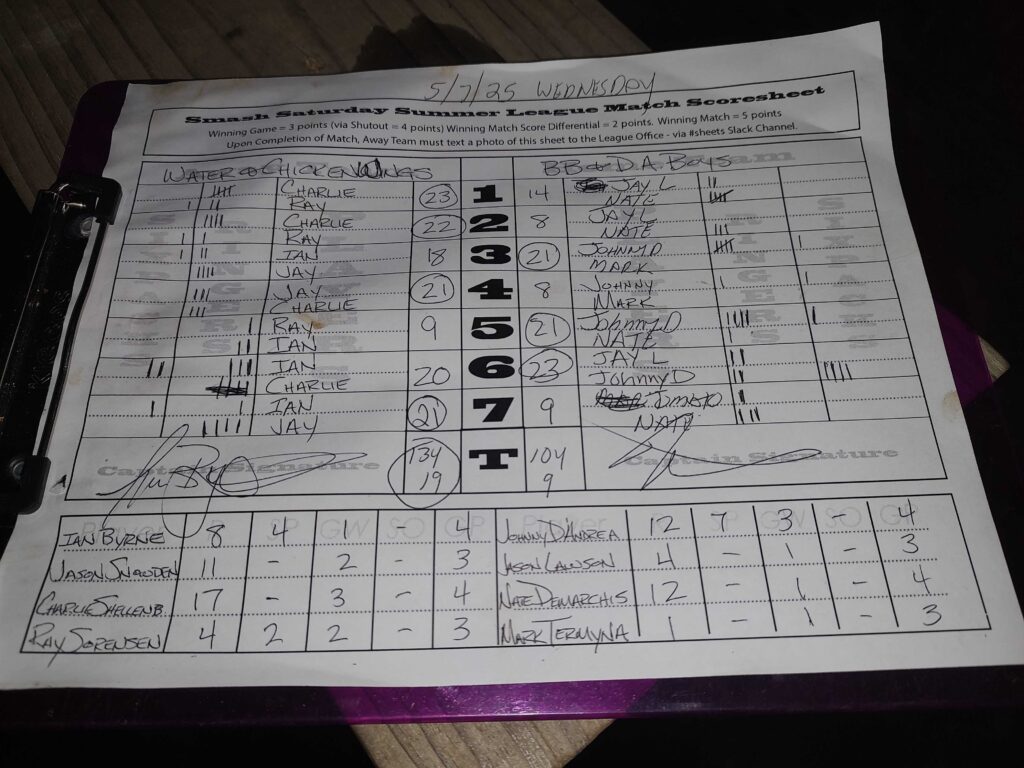 5/7/25 WEDNESDAY
Smash Saturday Summer League Match Scoresheet
Winning Game = 3 points (via Shutout = 4 points) Winning Match Score Differential = 2 points. Winning Match = 5 points
Upon Completion of Match, Away Team must text a photo of this sheet to the League Office - via #sheets Slack Channel.
WATER & CHICKEN WINGS BB & D.A. BOYS
CHARLIE 23 1 14 JAY L
RAY NATE
CHARLIE 22 2 8 JAY L
RAY NATE
IAN 18 3 21 JOHNNY D
JAY MARK
JAY 21 4 8 JOHNNY
CHARLIE MARK
RAY 9 5 21 JOHNNY D
IAN NATE
IAN 20 6 23 JAY L
CHARLIE JOHNNY D
IAN 21 7 9
JAY NATE
134 T 104
19 9
Captain Signature Captain Signature
Player SP GW SO GP Player SP GW SO GP
IAN BYRNE 8 4 1 - 4 JOHNNY D'ANDREA 12 7 3 - 4
JASON SNOWDEN 11 - 2 - 3 JASON LAWSON 4 - 1 - 3
CHARLIE SHELLENB. 17 - 3 - 4 NATE DEMARCHIS 12 - 1 - 4
RAY SORENSEN 4 2 2 - 3 MARK TERMYNA 1 - 1 - 3